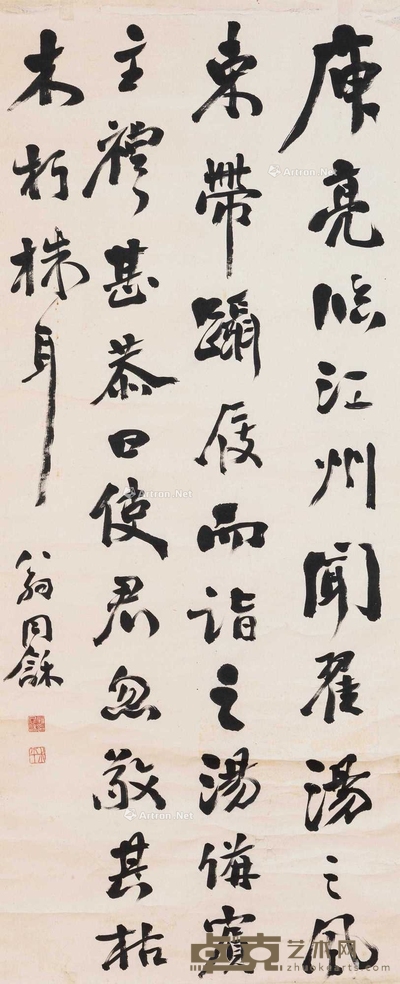 庾亮臨江州聞翟湯之風
束帶躡屐而詣之湯備賓
主禮甚恭曰使君忽敬其枯
木朽株耳
翁同龢
Artron.Net
Artron.Net
Artron.Net
Artron.Net
卓克艺术网
www.zhuokearts.com